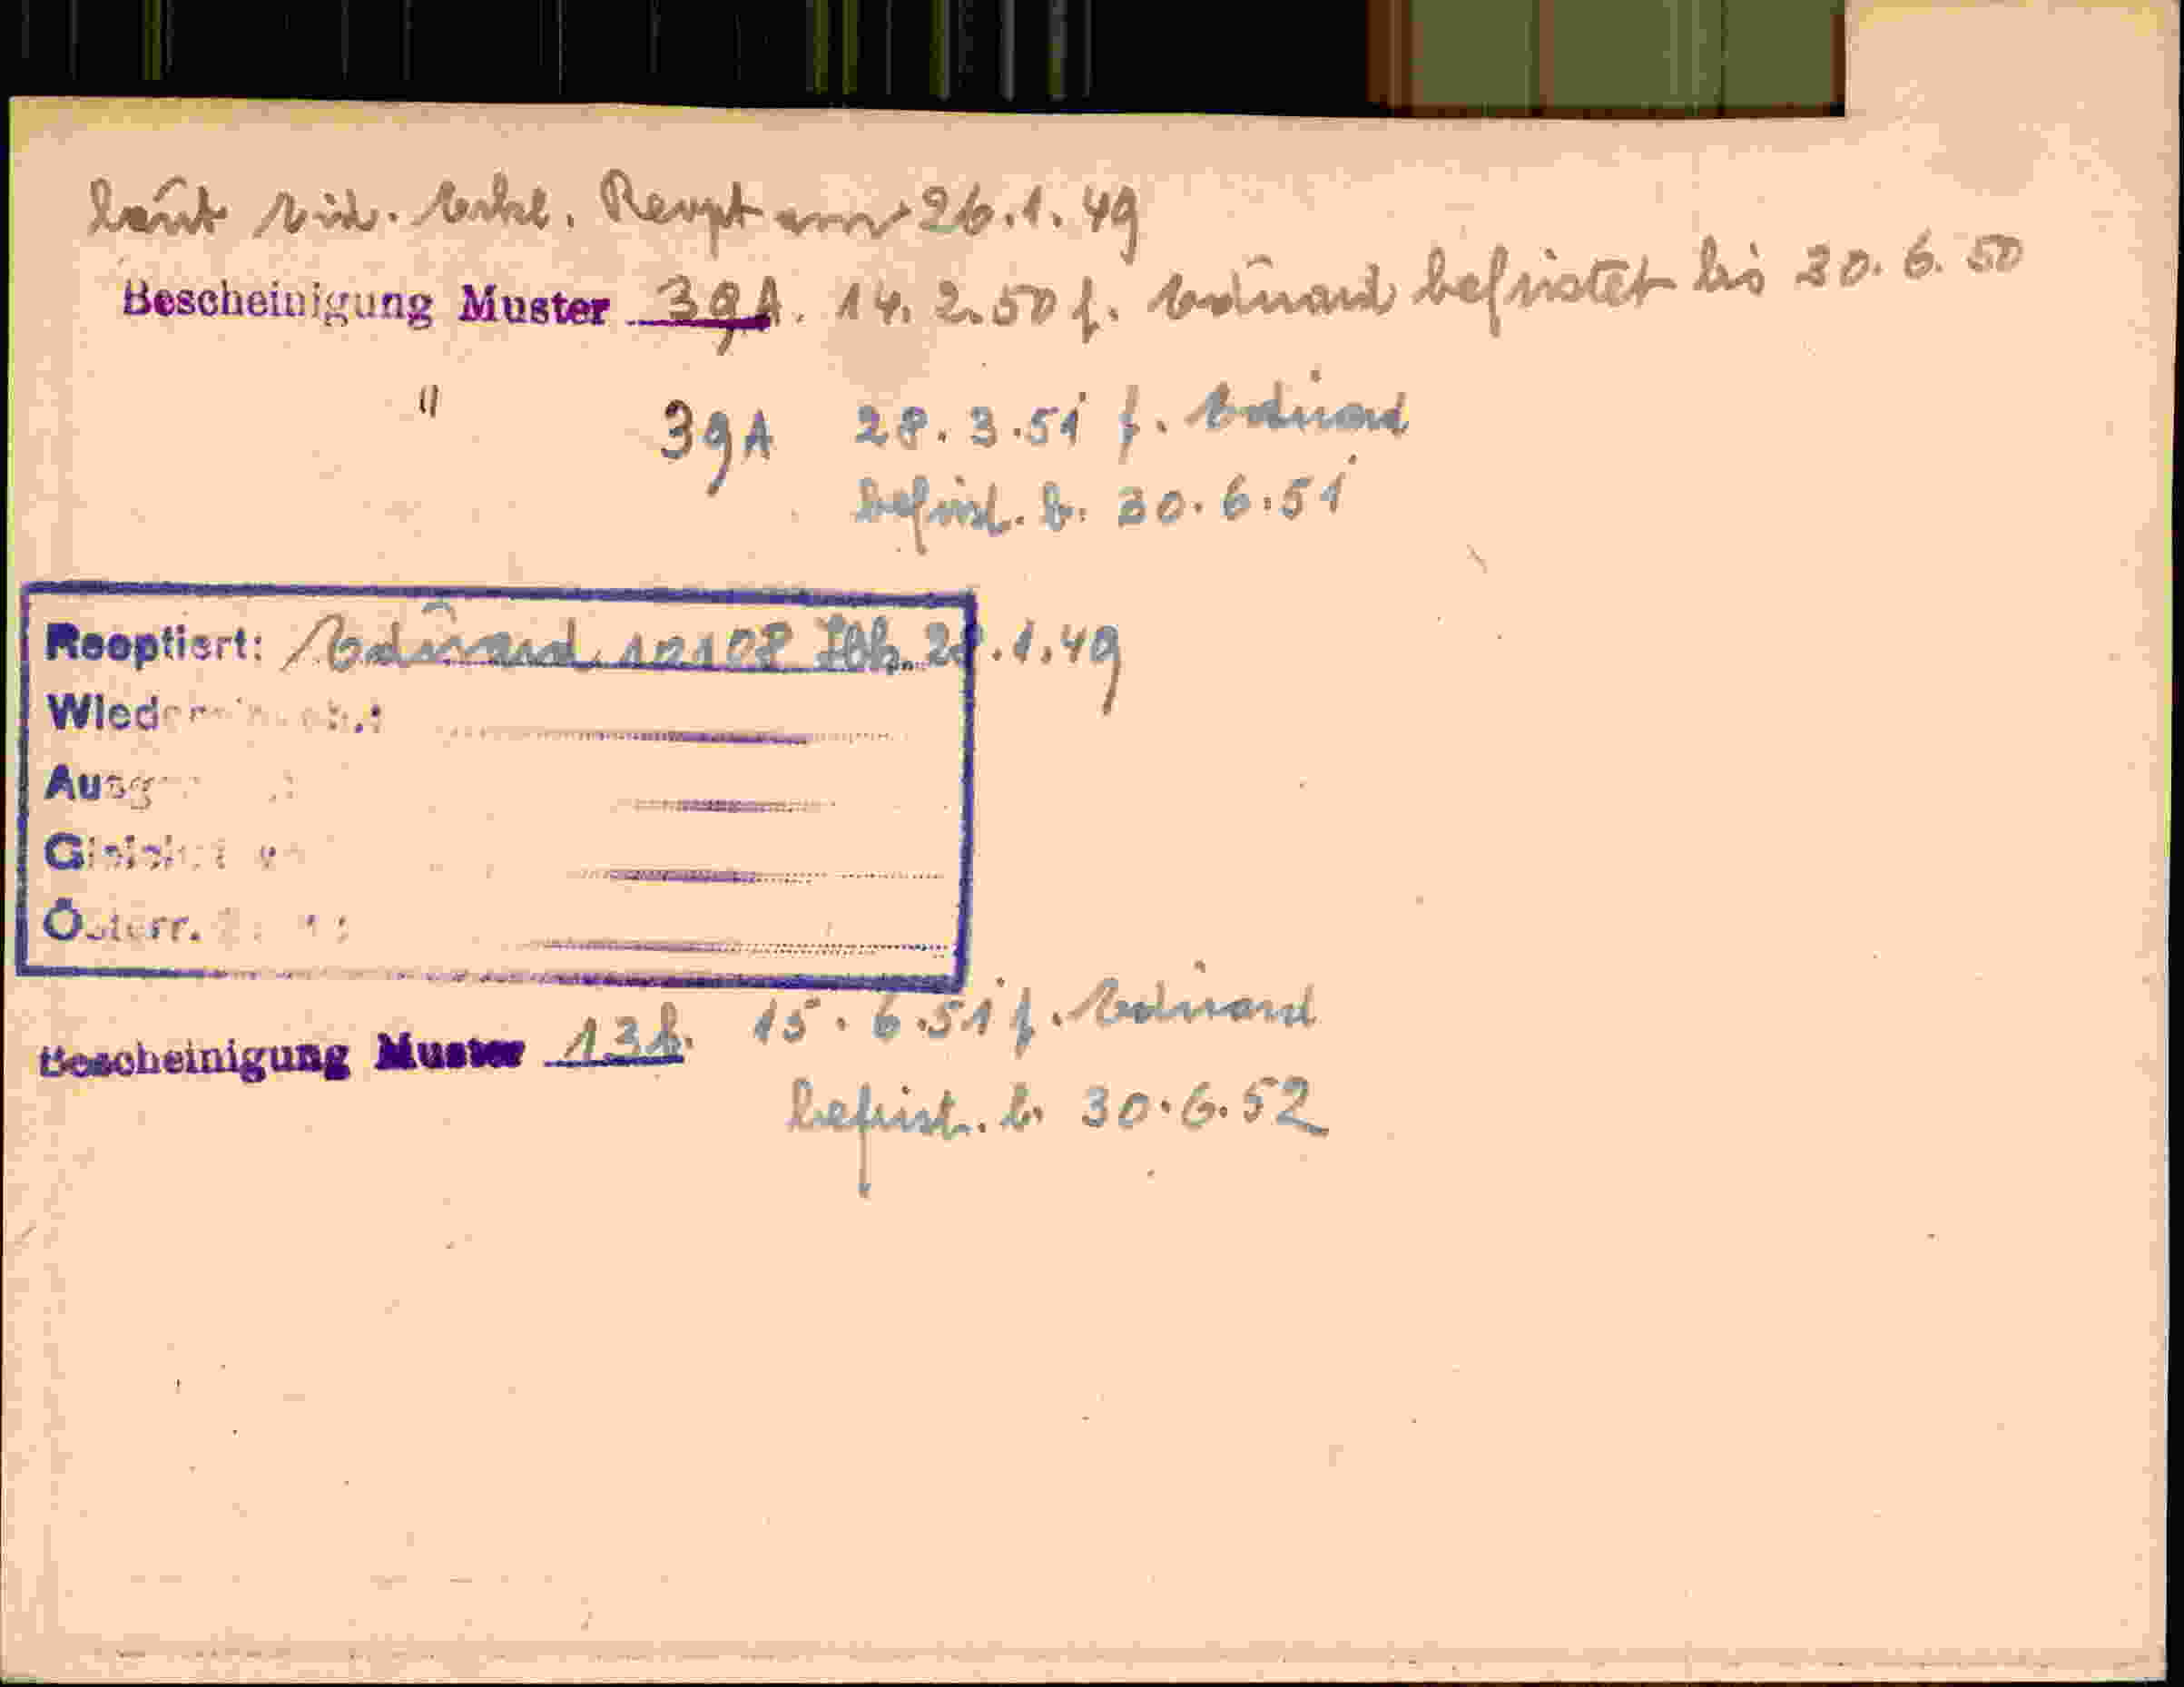 laut eid. Erkl. Reopt am 26.1.49
Bescheinigung Muster 39A. 14. 2. 50 f. Eduard befristet bis 30. 6. 50
" 39A 28. 3. 51 f. Eduard
befrist. b. 30. 6. 51
Reoptiert: Eduard 10108 Ibk. 28.1.49
Österr.
Bescheinigung Muster 13b. 15. 6. 51 f. Eduard
befrist. b. 30. 6. 52